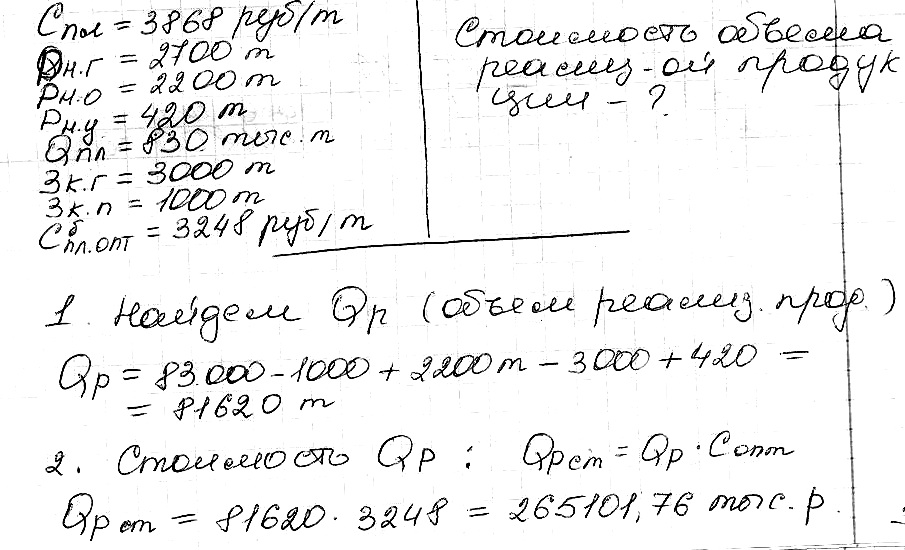 Спол = 3868 руб/т
Рн.г = 2700 т
Рн.о = 2200 т
Рн.у = 420 т
Qпл = 830 тыс. т
Зк.г = 3000 т
Зк.п = 1000 т
Сбпл.опт = 3248 руб/т
Стоимость объема
реализ-ой продук
ции - ?
1. Найдем Qр (объем реализ. прод.)
Qр = 83.000 - 1000 + 2200 т - 3000 + 420 =
= 81620 т
2. Стоимость Qр : Qрст = Qр · Сопт
Qр ст = 81620 · 3248 = 265101,76 тыс. р.